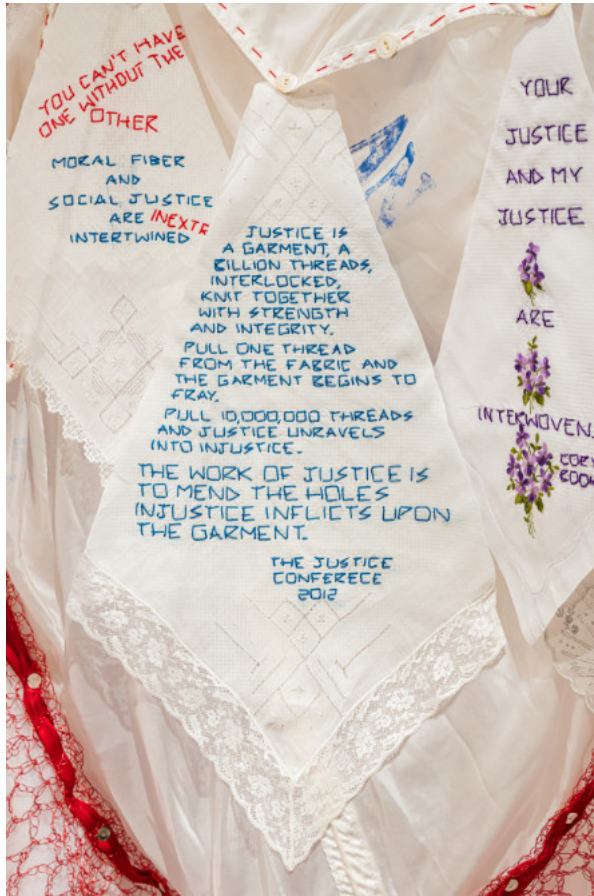 YOU CAN'T HAVE
ONE WITHOUT THE
OTHER
MORAL FIBER
AND
SOCIAL JUSTICE
ARE INEXTR
INTERTWINED
JUSTICE IS
A GARMENT, A
BILLION THREADS,
INTERLOCKED,
KNIT TOGETHER
WITH STRENGTH
AND INTEGRITY.
PULL ONE THREAD
FROM THE FABRIC AND
THE GARMENT BEGINS TO
FRAY.
PULL 10,000,000 THREADS
AND JUSTICE UNRAVELS
INTO INJUSTICE.
THE WORK OF JUSTICE IS
TO MEND THE HOLES
INJUSTICE INFLICTS UPON
THE GARMENT.
THE JUSTICE
CONFERECE
2012
YOUR
JUSTICE
AND MY
JUSTICE
ARE
INTERWOVEN.